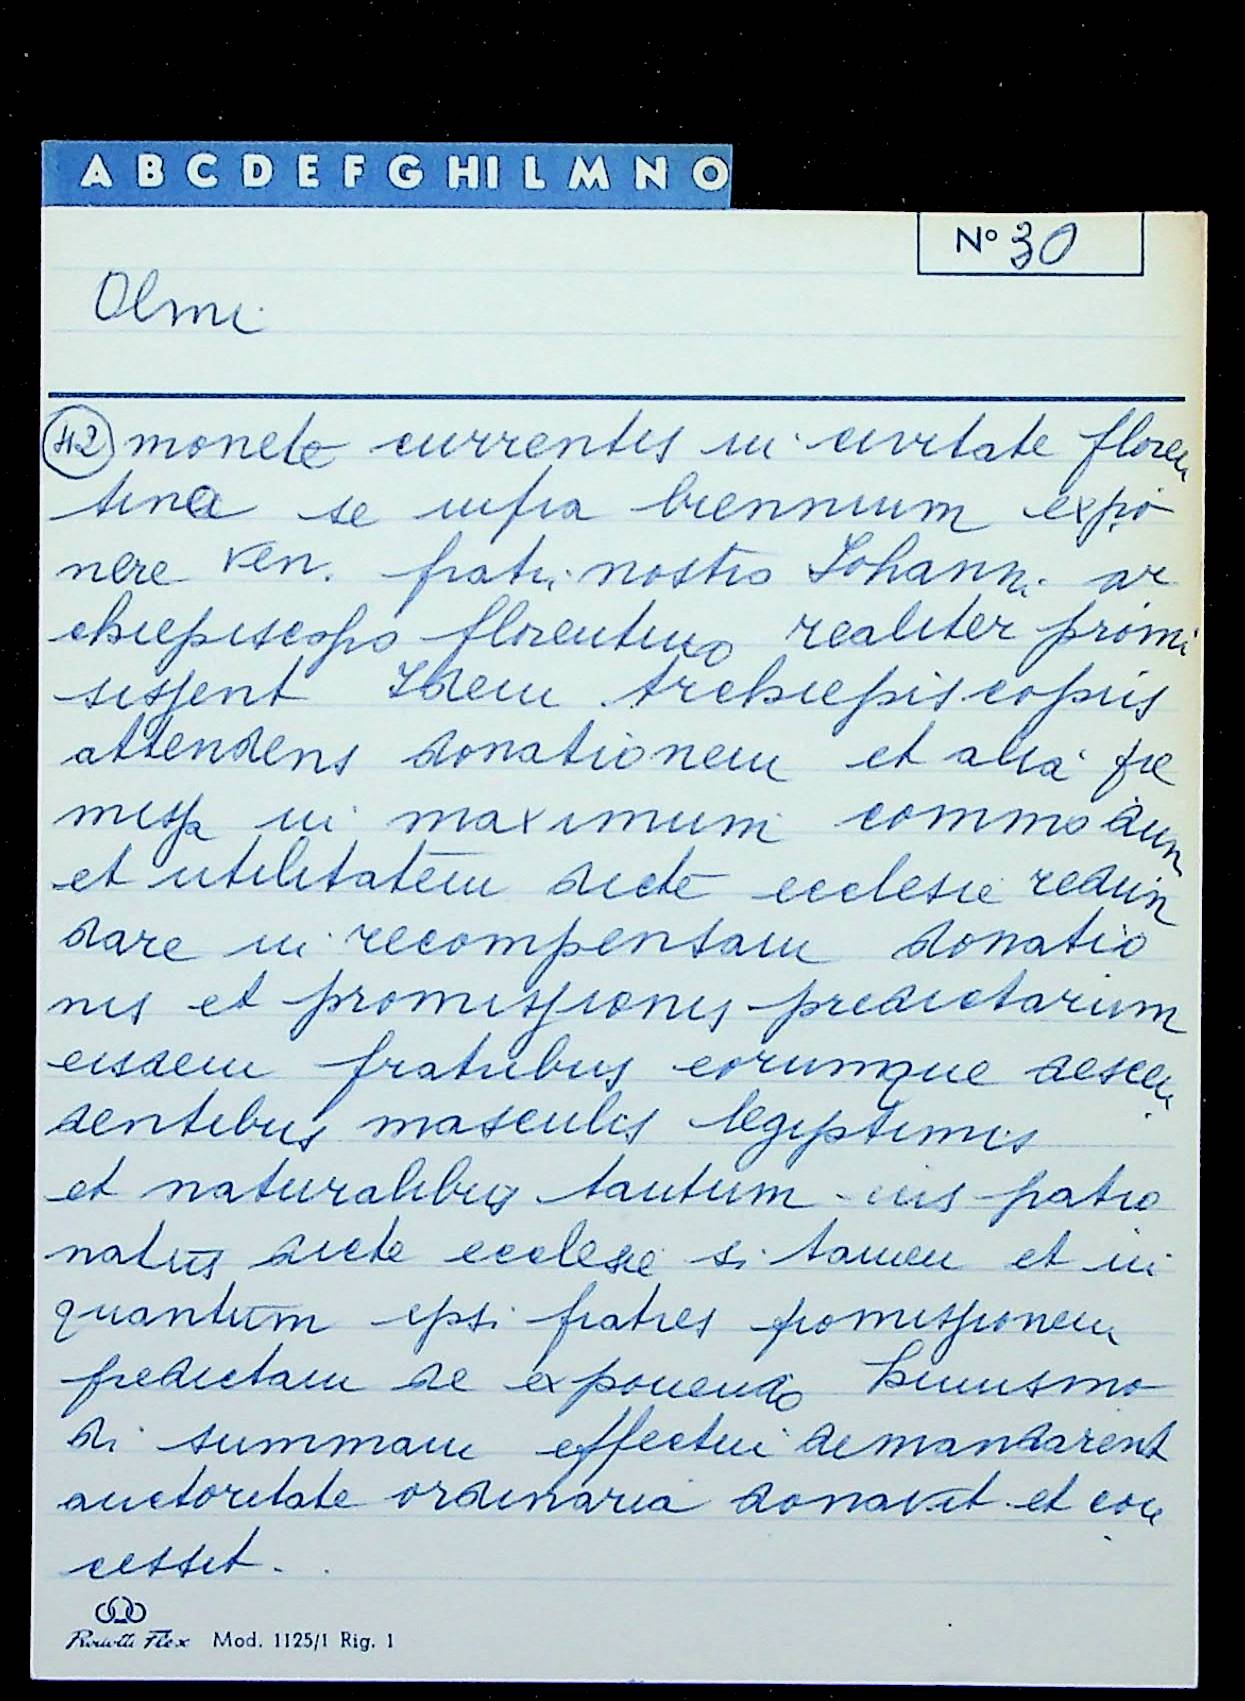 A B C D E F G HI L M N O
N° 30
Olmi
42 monete currentis in civitate floren
tina se infra biennium expo
nere ven. fratri nostro Iohanni ar
chiepiscopo florentino realiter promi
sissent Idem Archiepiscopus
attendens donationem et alia pre
missa in maximum commodum
et utilitatem dicte ecclesie redun
dare in recompensam donatio
nis et promissionis predictarum
eisdem fratribus eorumque descen
dentibus masculis legiptimis
et naturalibus tantum ius patro
natus dicte ecclesie si tamen et in
quantum ipsi fratres promissionem
predictam de exponendo huiusmo
di summam effectui demandarent
auctoritate ordinaria donavit et con
cessit.
Mod. 1125/1 Rig. 1